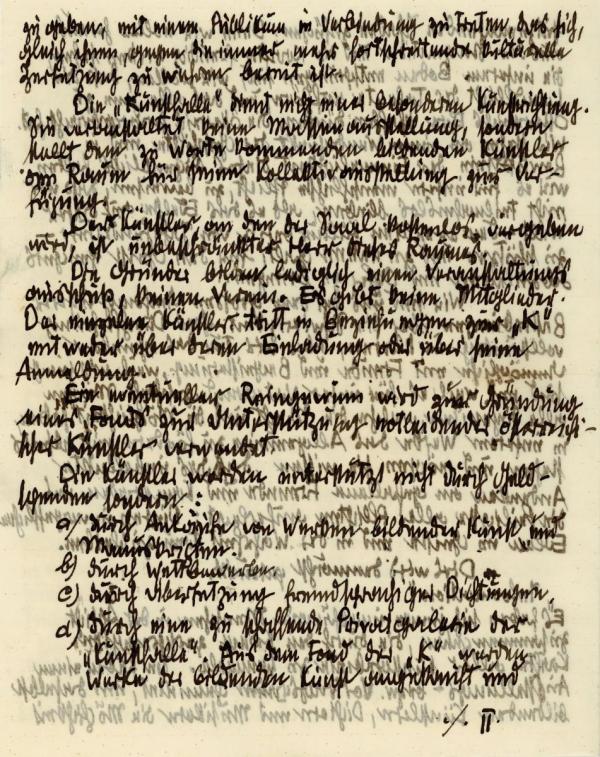 zu geben, mit einem Publikum in Verbindung zu treten, das sich,
gleich ihnen, gegen die immer mehr fortschreitende kulturelle
Zersetzung zu wehren bereit ist.
Die „Kunsthalle" dient nicht einer besonderen Kunstrichtung.
Sie veranstaltet keine Massenausstellung, sondern
stellt dem zu Worte kommenden bildenden Künstler
den Raum für seine Kollektivausstellung zur Ver-
fügung.
Der Künstler, an den der Saal kostenlos vergeben
wird, ist unbeschränkter Herr dieses Raumes.
Die Gründer bilden lediglich einen Veranstaltungs
ausschuß, keinen Verein. Es gibt keine Mitglieder.
Der einzelne Künstler tritt in Beziehungen zur „K"
entweder über deren Einladung oder über seine
Anmeldung.
Ein eventueller Reingewinn wird zur Gründung
eines Fonds zur Unterstützung notleidender österreichi-
scher Künstler verwendet
Die Künstler werden unterstützt nicht durch Geld-
spenden sondern:
a) durch Ankäufe von Werken bildender Kunst und
Manuskripten.
b) durch Wettbewerbe.
c) durch Übersetzung fremdsprachiger Dichtungen,
d) durch eine zu schaffende Privatgalerie der
„Kunsthalle". Aus dem Fond der „K" werden
Werke der bildenden Kunst angekauft und
./. II.